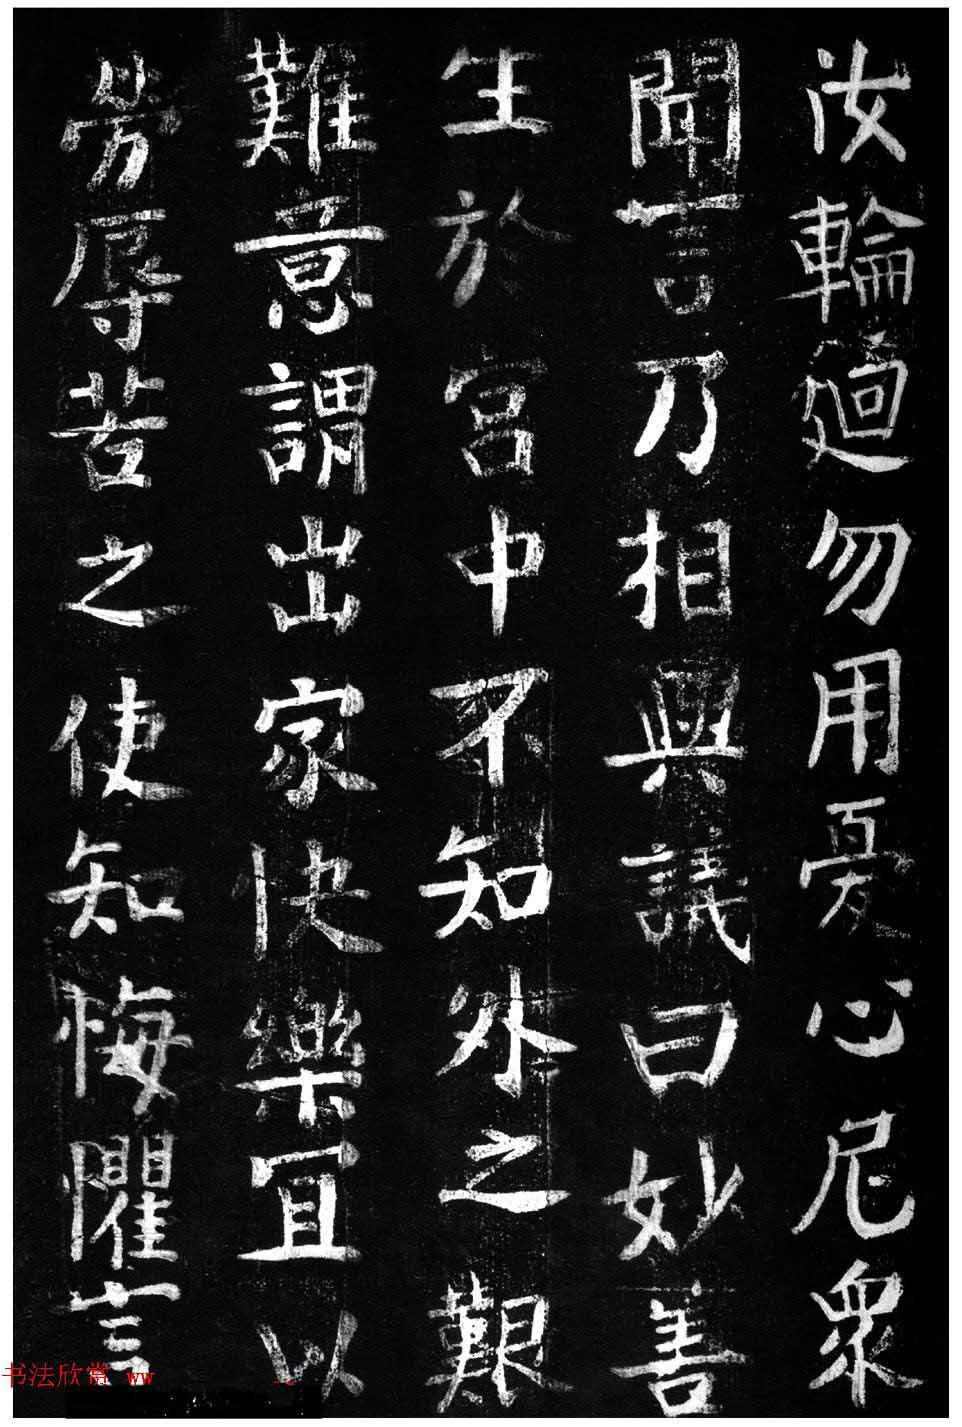 汝輪廻勿用憂心尼衆
聞言乃相與議曰妙善
生於宮中不知外之艱
難意謂出家快樂宜以
勞辱苦之使知悔懼言
书法欣赏 ww